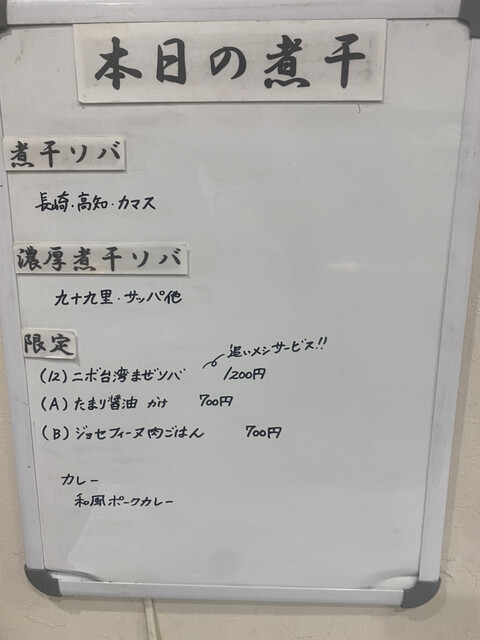 本日の煮干
煮干ソバ
長崎・高知・カマス
濃厚煮干ソバ
九十九里・サッパ他
限定
追いメシサービス!!
(12) ニボ台湾まぜソバ 1200円
(A) たまり醤油 かけ 700円
(B) ジョセフィーヌ肉ごはん 700円
カレー
和風ポークカレー